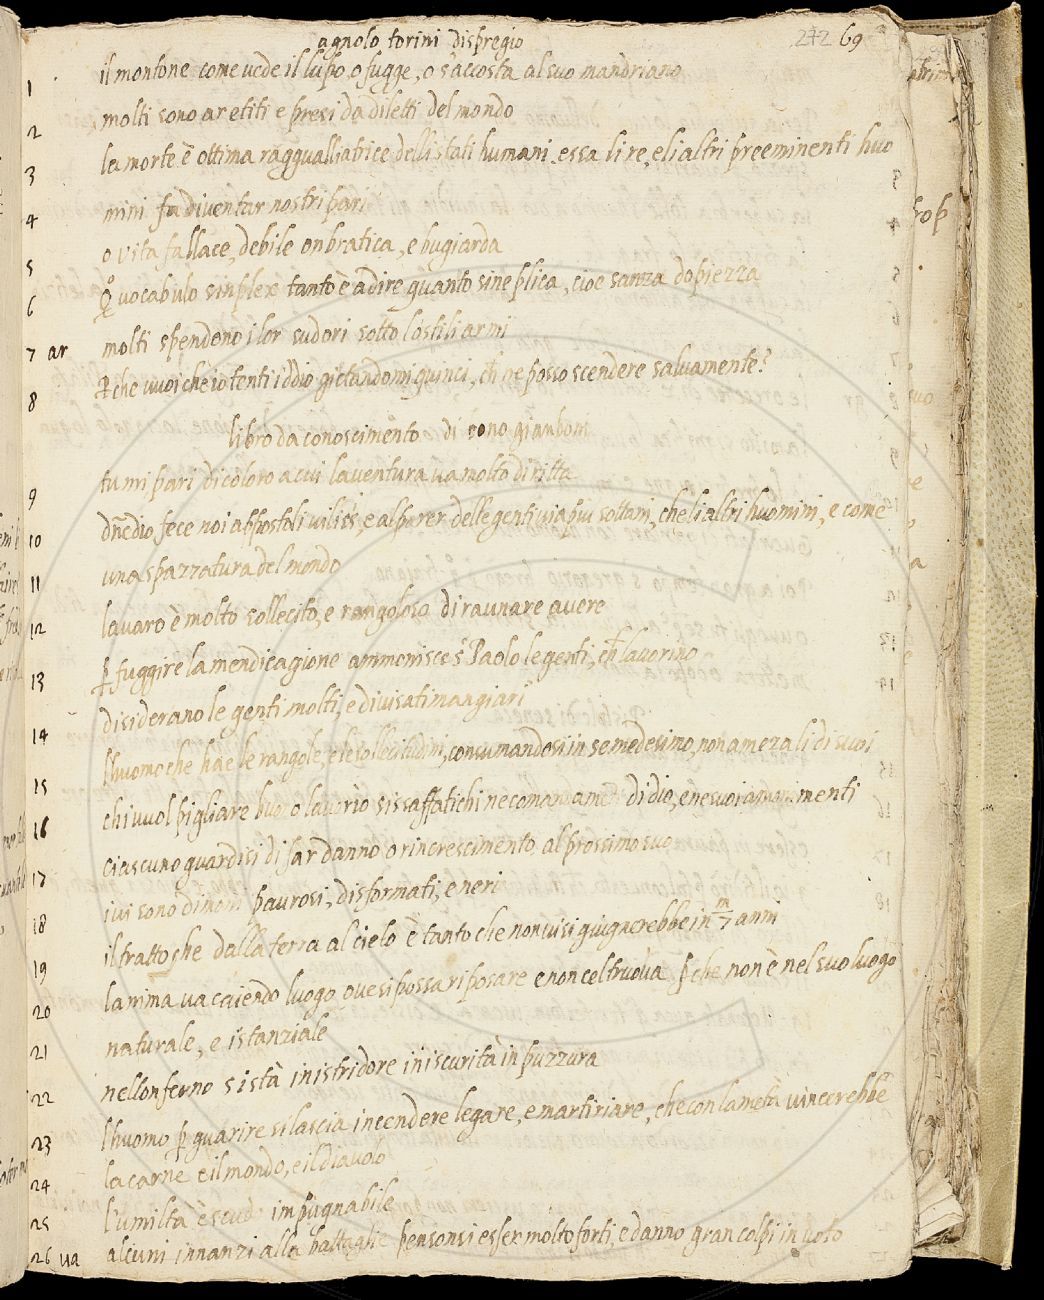 agnolo torini dispregio 242 69
1 il montone come vede il lupo, o fugge, o s'accosta al suo mandriano
2 molti sono aretiti e presi da diletti del mondo
3 la morte è ottima ragguagliatrice delli stati humani. essa li re, e li altri preeminenti huo
4 mini fa diventar nostri pari
5 o vita fallace, debile onbratica, e bugiarda
6 vocabulo sinplex tanto è a dire quanto sine plica, cioe sanza dopiezza
7 ar molti spendono i lor sudori sotto l'ostili armi
8 che vuoi che io tenti iddio gictandomi quinci, ch ne posso scendere salvamente?
libro da conoscimento di bono gianboni
9 tu mi pari di coloro a cui la ventura va molto diritta
10 dnedio fece noi appostoli viliss, e al parer delle genti via piu sottani, che li altri huomini, e come
11 una spazzatura del mondo
12 lavaro è molto sollecito, e rangoloso di raunare avere
13 p fuggire la mendicagione ammonisce s Paolo le genti, ch lavorino
14 disiderano le genti molti, e divisati mangiari
l'huomo che hae le rangole, e le sollecitudini, consumandosi in se medesimo, non ameza li di suoi
15 chi vuol pigliare buono lavorio si s'affatichi ne comandamenti di dio, e ne suoi amonimenti
16 ciascuno guardisi di far danno o rincrescimento al prossimo suo
17 ivi sono dimoni paurosi, disformati, e neri
18 il tratto che dalla terra al cielo è tanto che non vi si giugnerebbe in 7 m anni
19 l'anima va caiendo luogo ove si possa riposare e non cel truova pche non è nel suo luogo
20 naturale, e istanziale
21 nello'nferno si sta in istridore in iscurità in puzzura
22 l'huomo p guarire si lascia incendere legare, e martiriare, che con la metà vincerebbe
23 la carne e il mondo, e il diavolo
24 l'umiltà è scudo impugnabile
25
26 va alcuni innanzi alla battaglie pensonsi esser molto forti, e danno gran colpi in voto